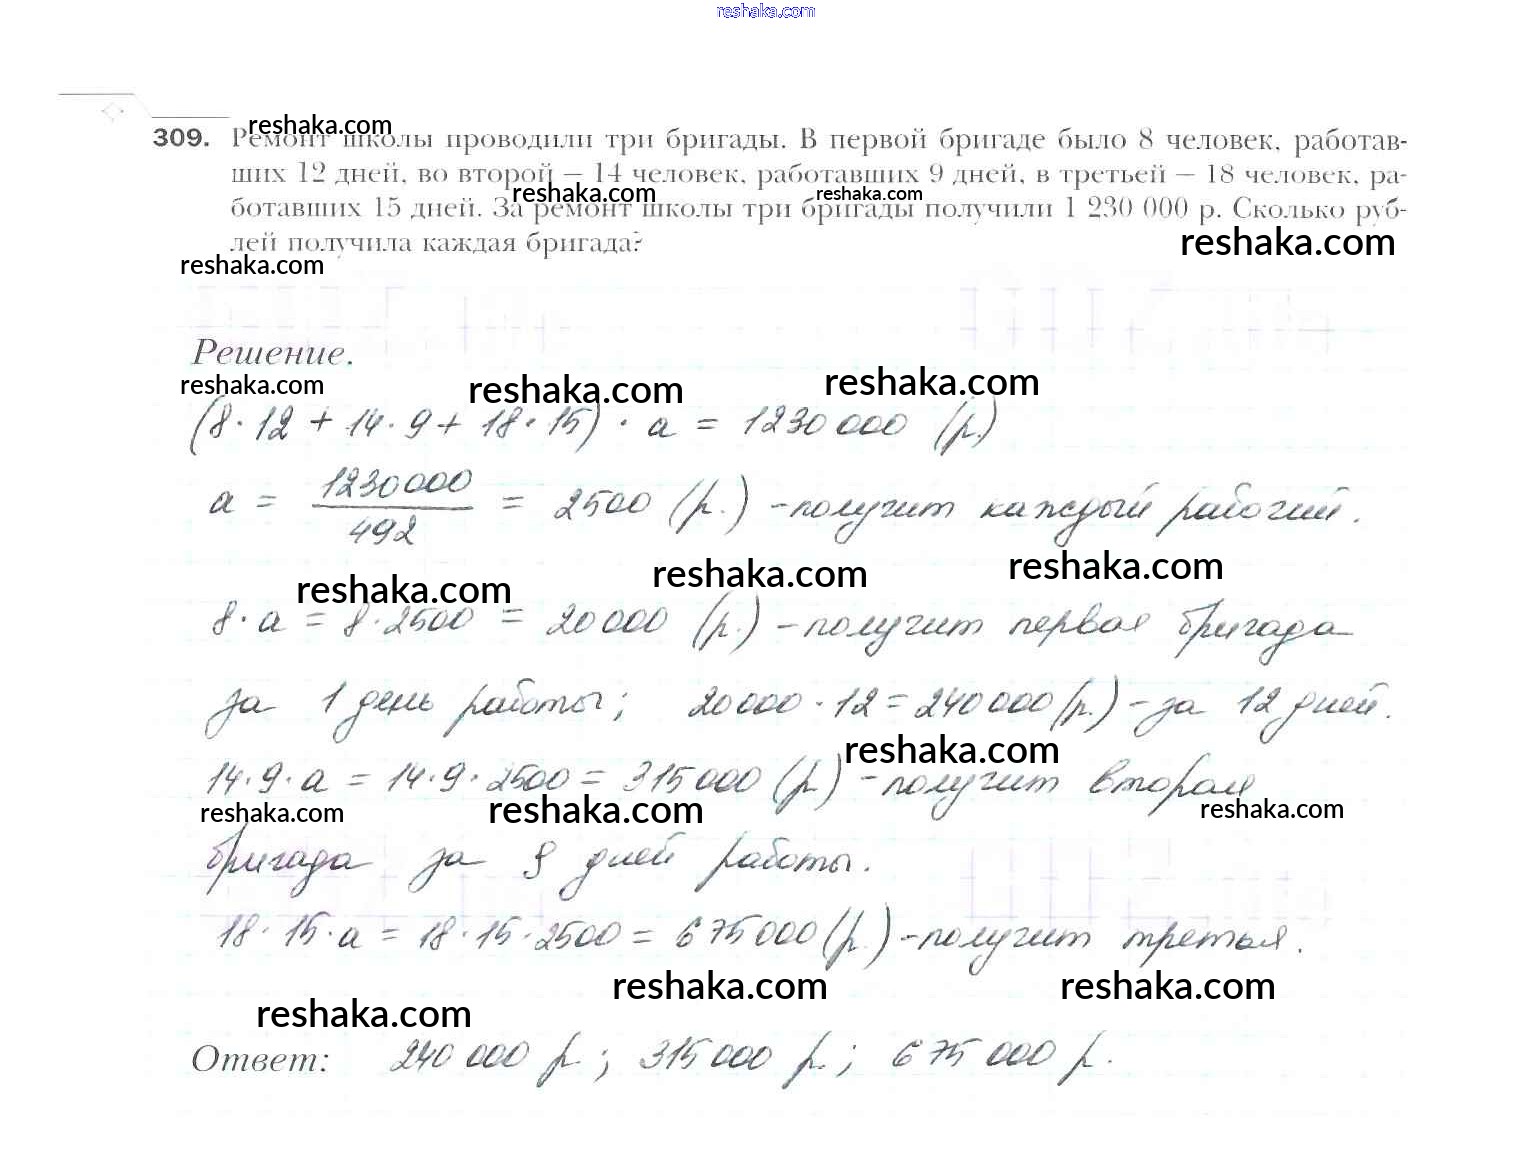 reshaka.com
reshaka.com
309. Ремонт школы проводили три бригады. В первой бригаде было 8 человек, работав-
ших 12 дней, во второй – 14 человек, работавших 9 дней, в третьей – 18 человек, ра-
reshaka.com reshaka.com
ботавших 15 дней. За ремонт школы три бригады получили 1 230 000 р. Сколько руб-
лей получила каждая бригада?
reshaka.com
reshaka.com
Решение.
reshaka.com reshaka.com reshaka.com
(8·12 + 14·9 + 18·15)·a = 1230000 (р.)
a = 1230000/492 = 2500 (р.) – получит каждый рабочий.
reshaka.com reshaka.com reshaka.com
8·a = 8·2500 = 20000 (р.) – получит первая бригада
за 1 день работы; 20000·12 = 240000 (р.) – за 12 дней.
reshaka.com
14·9·a = 14·9·2500 = 315000 (р.) – получит вторая
reshaka.com reshaka.com reshaka.com
бригада за 9 дней работы.
18·15·a = 18·15·2500 = 675000 (р.) – получит третья.
reshaka.com reshaka.com reshaka.com
Ответ: 240 000 р.; 315 000 р.; 675 000 р.